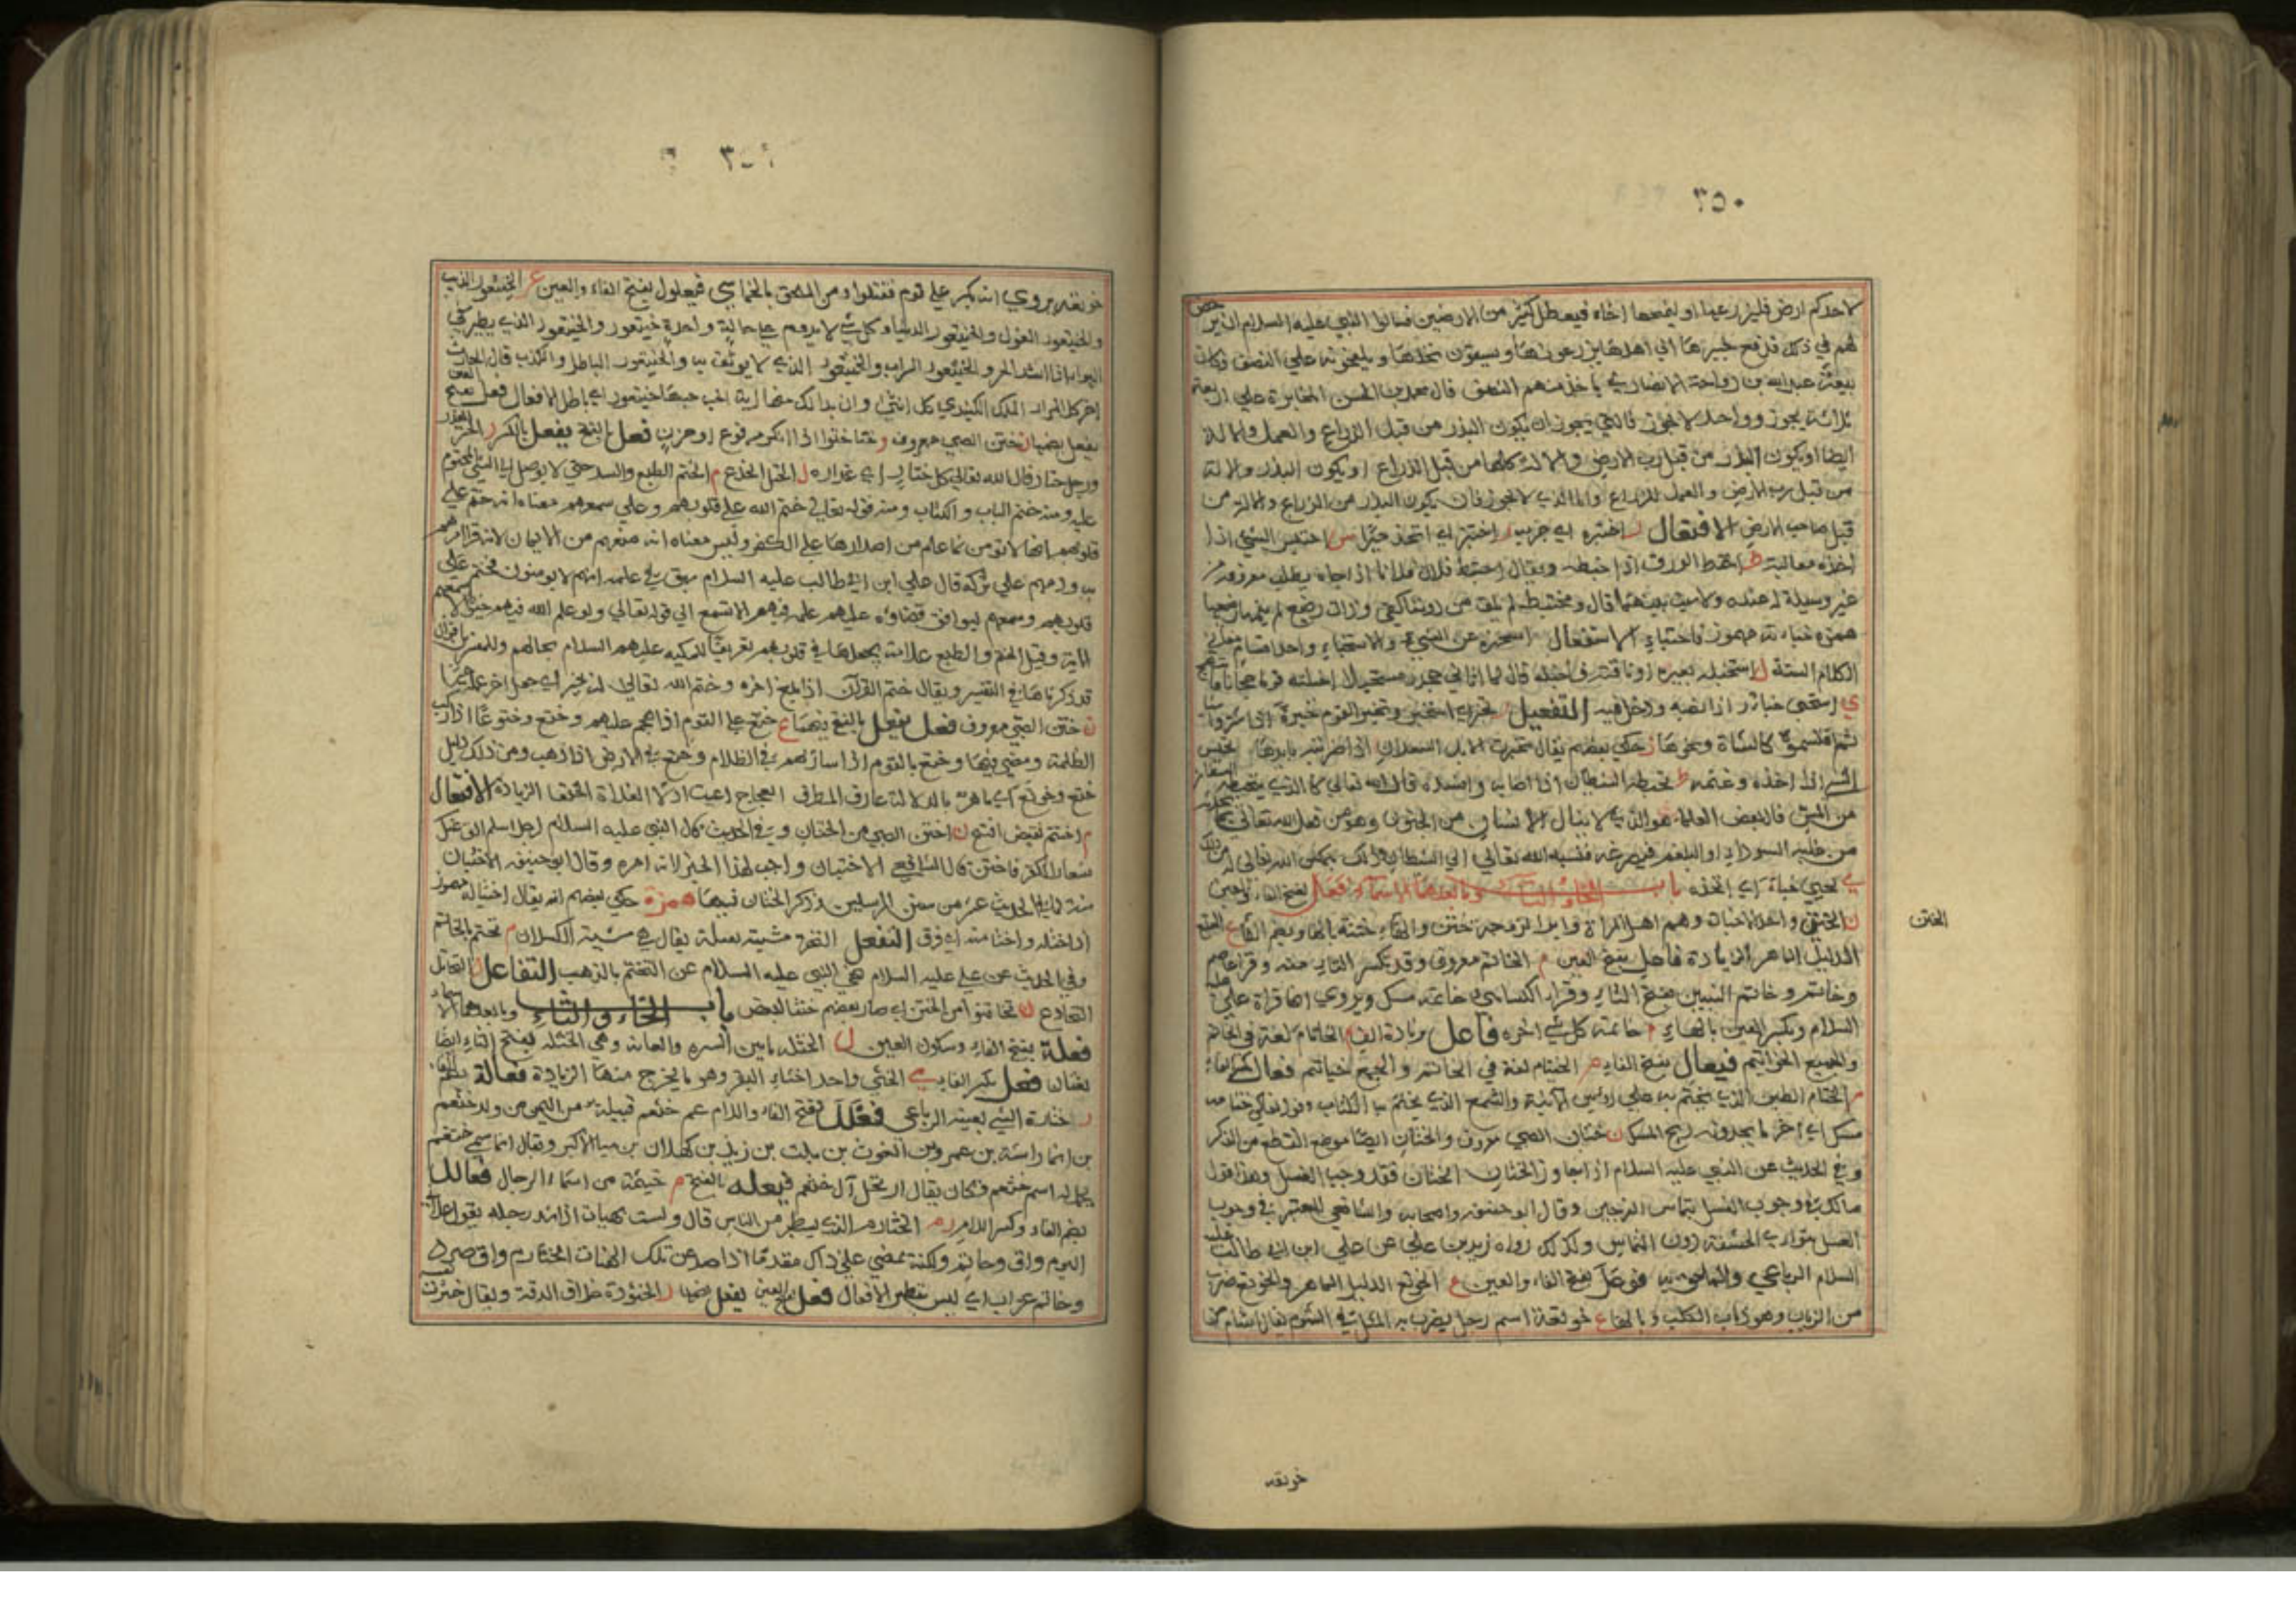 ٣٥٠
لاحدكم ارض فليزرعها او ليمنحها اخاه فيعطل كثير من الارضين فسالوا النبي عليه السلام ان يرخص
لهم في ذلك فدفع خيبرها الى اهلها يزرعونها ويسقون نخلها ويلقحونه على النصف فكان
يبعث عبد الله بن رواحة الانصاري ياخذ منهم النصف قال محمد بن الحسن المخابرة على اربعة
ثلاثة يجوز وواحد لا يجوز فالتي يجوز ان يكون البذر من قبل الزراع والعمل والالة
ايضا او يكون البذر من قبل رب الارض والالة كلها من قبل الزراع او يكون البذر والالة
من قبل رب الارض والعمل للزراع واما الذي لا يجوز فان يكون البذر من الزراع والالة من
قبل صاحب الارض الافتعال ر اختبره اي جربه ز اختبز اي اتخذ خبزا س اختبس الشيء اذا
اخذه مغالبة ط اختبط الورق اذا خبطه ويقال اختبط فلان فلانا اذا جاه يطلب معروفه من
غير وسيلة له عنده ولا سبب بينهما قال ومختبط لم يلق من دوننا كفى وذات رضيع لم ينمها رضيعها
همزة خباته مهموز فاختباء الاستفعال ر استخبره عن الشيء والاستخبار واحد اقسام معاني
الكلام الستة ل استخبله بعيره او ناقته فاخبله
ي استخبى خباء اذا نصبه ودخل فيه التفعل ر تخبر اي استخبر وتخبر القوم خبرة اذا اشتروا شاة
ثم اقتسموها كالشاة ونحوها ز حكى بعضهم يقال تخبزت الابل السعدان اذا ضربته بايديها تخبس
الشيء اذا اخذه وغنمه ط تخبطه الشيطان اذا اصابه وافسده قال الله تعالى كما الذي يتخبطه الشيطان
من المس قال بعض العلماء هو الذي لا ينال الانسان من الجنون وهو من فعل الله تعالى بما يحدثه
من غلبة السوداء او البلغم فيصرعه فنسبه الله تعالى الى الشيطان
ي تخبى خباء اي اتخذه باب الخاء والتاء وما بعدهما الاسماء فعل بفتح الفاء والعين
ن الختن واحد الاختان وهم اهل المراة وابو الزوجة ختن والهاء ختنة بالهاء وبضم الفاء ع الختع
الدليل الماهر الزيادة فاعل بفتح العين م الخاتم معروف وقد تكسر التاء منه وقرا عاصم
وخاتم وخاتم النبيين بفتح التاء وقرا الكسائي خاتمه مسك ويروى انها قراة علي عليه
السلام وبكسر العين بالهاء م خاتمة كل شيء اخره فاعال بزيادة الف م الخاتام لغة في الخاتم
والجميع الخواتيم فيعال بفتح الفاء م الخيتام لغة في الخاتم والجمع خياتم فعال بكسر الفاء
م الختام الطين الذي يختم به على رؤس الانية والشمع الذي يختم به الكتاب وقوله تعالى ختامه
مسك اي اخر ما يجدونه ريح المسك ن ختان الصبي معروف والختان ايضا موضع القطع من الذكر
وفي الحديث عن النبي عليه السلام اذا جاوز الختان الختان فقد وجب الغسل وهذا قول
مالك في وجوب الغسل بتماس الزوجين وقال ابو حنيفة واصحابه والشافعي المعتبر في وجوب
الغسل بتواري الحشفة دون التماس وكذلك رواه زيد بن علي عن علي ابن ابي طالب عليه
السلام الرباعي والملحق به فوعل بفتح الفاء والعين ع الخوتع الدليل الماهر والخوتع ضرب
من الذباب وهو ذباب الكلب وبالهاء ع خوتعة اسم رجل يضرب به المثل في الشوم يقال اشام من
الختن
خوتعه
خوتعه يروى انه كبر على قوم فقتلوا ومن الملحق بالخماسي فيعلول بفتح الفاء والعين ع الخيتعور الذيب
والخيتعور الغول والخيتعور الدنيا وكل شيء لا يدوم على حالة واحدة خيتعور والخيتعور الذي يطير في
الهواء اذا اشتد الحر والخيتعور السراب والخيتعور الذي لا يوثق به والخيتعور الباطل والكذب قال الحارث
اخر كل المرار الملك الكندي كل انثى وان بدا لك منها اية الحب حبها خيتعور اي باطل الافعال فعل بفتح العين
يفعل بضمها ن ختن الصبي معروف و ختا ختوا اذا انكسر من فزع او حزن فعل بالفتح يفعل بالكسر ر الختر الغدر
ورجل ختار قال الله تعالى كل ختار اي غدار ل الختل الخدع م الختم الطبع والسد حتى لا يوصل الى الشيء المختوم
عليه ومنه ختم الباب والكتاب ومنه قوله تعالى ختم الله على قلوبهم وعلى سمعهم معناه انه ختم على
قلوبهم انها لا تومن لما علم من اصرارها على الكفر وليس معناه انه منعهم من الايمان لانه قد امرهم
به وذمهم على تركه قال علي ابن ابي طالب عليه السلام سبق في علمه انهم لا يومنون فختم على
قلوبهم وسمعهم ليوافق قضاؤه عليهم علمه فيهم الا تسمع الى قوله تعالى ولو علم الله فيهم خيرا لاسمعهم
الاية وقيل الختم والطبع علامة يجعلها في قلوبهم تعريفا للملائكة عليهم السلام بحالهم وللمفسرين اقوال
قد ذكرناها في التفسير ويقال ختم القران اذا بلغ اخره وختم الله تعالى له بخير اي جعل اخر عمله خيرا
ن ختن الصبي معروف فعل يفعل بالفتح فيهما ع ختع على القوم اذا هجم عليهم وختع ختوعا اذا ركب
الظلمة ومضى فيها وختع بالقوم اذا سار بهم في الظلام وختع في الارض اذا ذهب ومن ذلك دليل
ختع وخوتع اي ماهر بالدلالة الزيادة الافتعال
م اختتم نقيض افتتح ن اختتن الصبي من الختان وفي الحديث قال النبي عليه السلام لرجل اسلم الق عنك
شعار الكفر فاختتن قال الشافعي الاختتان واجب لهذا الخبر لانه امره وقال ابو حنيفة الاختتان
سنة لما في الحديث عشر من سنن المرسلين وذكر الختان فيها همزة حكى بعضهم انه يقال اختتا له مهموز
اذا ختله واختتا منه اي فرق التفعل
وفي الحديث عن علي عليه السلام نهى النبي عليه السلام عن التختم بالذهب التفاعل ل التخاتل
التخادع ن تخاتنوا من الختن اي صار بعضهم ختنا لبعض باب الخاء والثاء وما بعدهما الاسماء
فعلة بفتح الفاء وسكون العين ل الخثلة ما بين السرة والعانة وهي الخثلة بفتح الثاء ايضا
لغتان فعل بكسر الفاء ي الخثي واحد اخثاء البقر وهو ما يخرج منها الزيادة فعالة بضم الفاء
ر خثارة الشيء بقيته الرباعي فعلل بفتح الفاء واللام عم خثعم قبيلة من اليمن من ولد خثعم
بن انمار بن اراشة بن عمرو بن الغوث بن نبت بن زيد بن كهلان بن سبا الاكبر ويقال انما سمي خثعم
بجمل له اسم خثعم فكان يقال ارتحل ال خثعم فيعله بالفتح م خيثمة من اسماء الرجال فعالل
بضم الفاء وكسر اللام رم الخثارم الذي يتطير من الناس قال ولست بهياب اذا شد رحله يقول عداني
اليوم واق وحاتم ولكنه يمضي على ذاك مقدما اذا صد عن تلك الهنات الخثارم واق صرد
وحاتم غراب اي ليس بمتطير الافعال فعل بفتح العين يفعل بضمها ر الخثورة خلاف الرقة ويقال خثرت